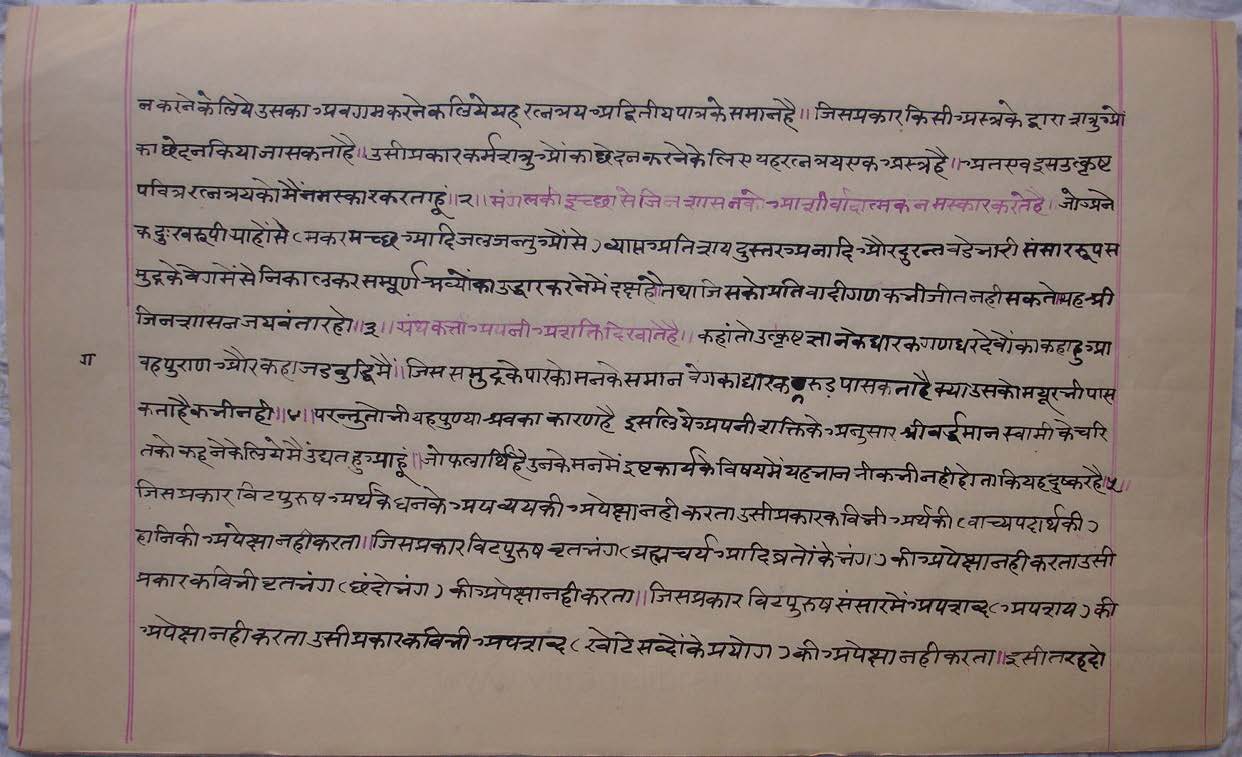 न करनेके लिये उसका अवगम करनेक लिये यह रत्नत्रय अद्वितीय पात्रके समान है॥ जिस प्रकार किसी अस्त्रके द्वारा शत्रुओं
का छेदन किया जा सकता है॥ उसी प्रकार कर्मशत्रुओंका छेदन करनेके लिए यह रत्नत्रय एक अस्त्र है॥ अतएव इस उत्कृष्ट
पवित्र रत्नत्रयको मैं नमस्कार करता हूं॥२॥ मंगलकी इच्छासे जिनशासनको आशीर्वादात्मक नमस्कार करते है। जो अने
क दुःखरूपी ग्राहोंसे (मकरमच्छ आदि जलजन्तुओंसे) व्याप्त अतिशय दुस्तर अनादि और दुरन्त बडे भारी संसाररूप स
मुद्रके वेगमेंसे निकालकर सम्पूर्ण भव्योंका उद्धार करनेमें दक्ष है तथा जिसको प्रतिवादीगण कभी जीत नही सकते यह श्री
जिनशासन जयवंता रहो॥३॥ ग्रंथकर्त्ता अपनी अशक्ति दिखाते है॥ कहां तो उत्कृष्ट ज्ञानके धारक गणधरदेवोंका कहा हुआ
ग
वह पुराण और कहा जडबुद्धि मैं॥ जिस समुद्रके पारको मनके समान वेगका धारक रुड़ पा सकता है क्या उसको मयूर भी पा स
कता है कभी नही॥४॥ परन्तु तो भी यह पुण्याश्रवका कारण है इसलिये अपनी शक्तिके अनुसार श्री वर्द्धमान स्वामीके चरि
तको कहनेके लिये मैं उद्यत हुआ हूं॥ जो फलार्थि है उनके मनमें इष्ट कार्यके विषयमें यह भान भी कभी नही होता कि यह दुष्कर है॥५॥
जिस प्रकार विटपुरुष अर्थके धनके अपव्ययकी अपेक्षा नही करता उसी प्रकार कवि भी अर्थकी (वाच्य पदार्थकी)
हानिकी अपेक्षा नही करता॥ जिस प्रकार विटपुरुष वृतभंग (ब्रह्मचर्य आदि व्रतोंके भंग) की अपेक्षा नही करता उसी
प्रकार कवि भी वृतभंग (छंदोभंग) की अपेक्षा नही करता॥ जिस प्रकार विटपुरुष संसारमें अपशब्द (अपशय) की
अपेक्षा नही करता उसी प्रकार कवि भी अपशब्द (खोटे सब्दोंके प्रयोग) की अपेक्षा नही करता॥ इसी तरह दो